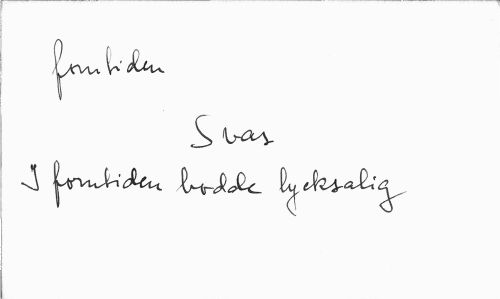 forntiden
Svas
I forntiden bodde lycksalig